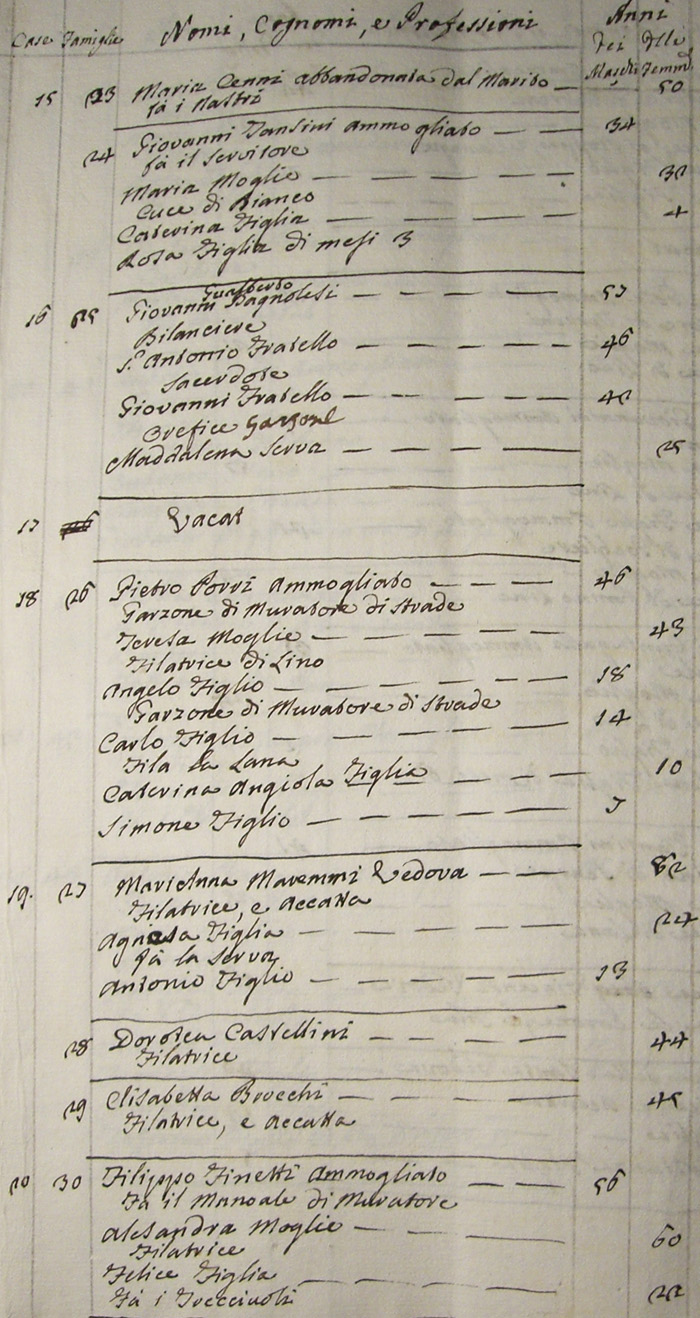 Case Famiglie Nomi, Cognomi, e Professioni Anni
dei Maschi delle Femm.
15 23 Maria Cenni abbandonata dal Marito — 50
fà i Nastri
24 Giovanni Tansini Ammogliato — — 34
fà il Servitore
Maria Moglie — — — — — 32
Cuce di Bianco
Caterina Figlia — — — — — 4
Rosa Figlia di mesi 3
Gualberto
16 25 Giovanni Bagnolesi — — — — 57
Bilanciere
S.r Antonio Fratello — — — — — 46
Sacerdote
Giovanni Fratello — — — — — 42
Orefice Garzone
Maddalena Serva — — — — — 25
17 26 Vacat
18 26 Pietro Porri Ammogliato — — — 46
Garzone di Muratore di strade
Teresa Moglie — — — — — 43
Filatrice di Lino
Angelo Figlio — — — — — — 18
Garzone di Muratore di strade
Carlo Figlio — — — — — 14
Fila la Lana
Caterina Angiola Figlia — — — 10
Simone Figlio — — — — — 7
19. 27 MariAnna Maremmi Vedova — — 62
Filatrice, e Accatta
Agnesa Figlia — — — — — 24
fà la Serva
Antonio Figlio — — — — — 13
28 Dorotea Castellini — — — — 44
Filatrice
29 Elisabetta Brocchi — — — — — 45
Filatrice, e Accatta
20 30 Filippo Finetti Ammogliato — — — 56
Fà il Manoale di Muratore
Alesandra Moglie — — — — — 60
Filatrice
Felice Figlia — — — — — 22
Fà i Trecciuoli